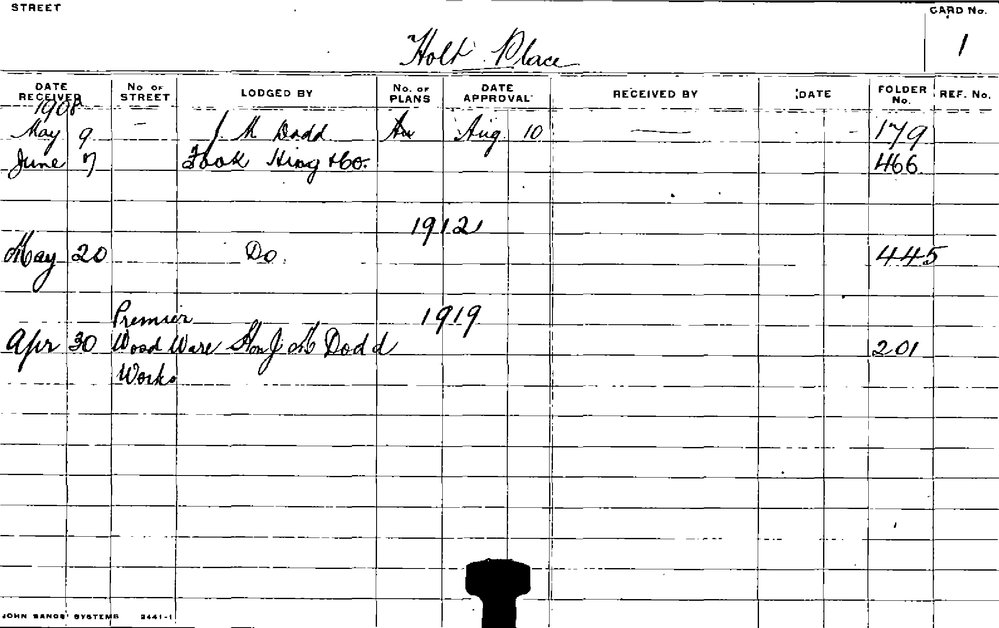 STREET
CARD No.
Holt Place
1
DATE RECEIVED No OF STREET LODGED BY No. OF PLANS DATE APPROVAL RECEIVED BY DATE FOLDER No. REF. No.
1908
May 9 — J M Dodd Aug 10 — 179
June 7 Fook Hing & Co. 466
1912
May 20 Do. 445
Premier 1919
Apr 30 Wood Ware Hon J M Dodd 201
Works
JOHN SANDS' SYSTEMS 2441-1